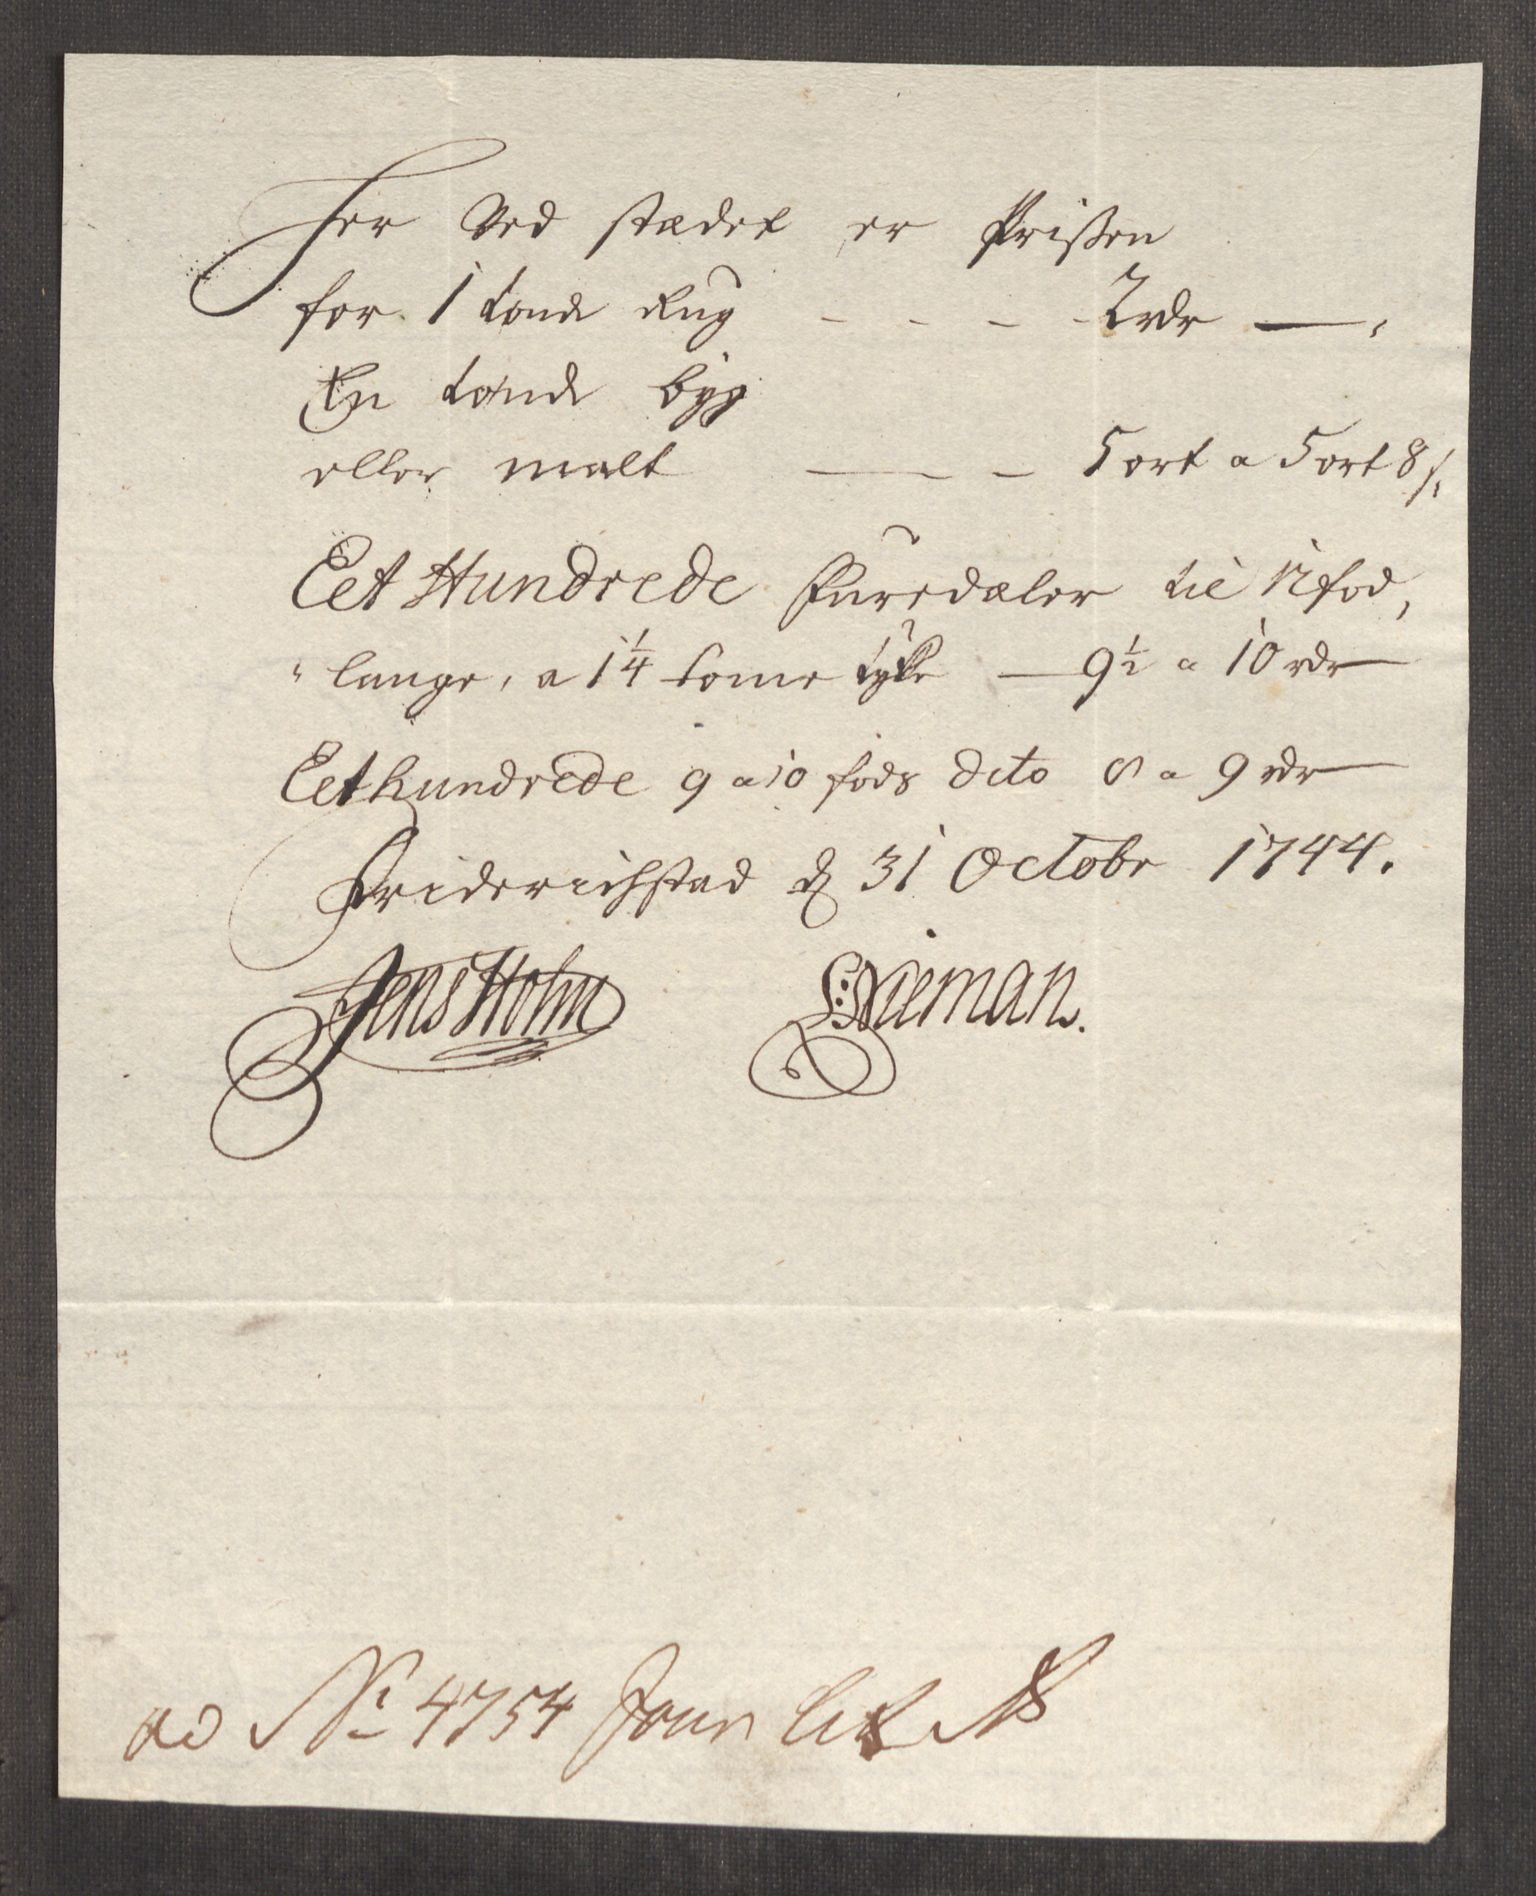 Her Ved stædet er Prisen
for 1 tønde Rug - - - - 2 rdr —
En tønde byg
eller malt — - 5 ort a 5 ort 8 s.
Eet Hundrede Furedæler til 12 fod,
lange, a 1 1/4 tome tyke — 9 1/2 a 10 rdr —
Eet hundrede 9 a 10 fods dito 8 a 9 rdr —
Friderichstad d 31 Octobr 1744.
Jens Holm Nieman.
ad No 4754 Jour lit